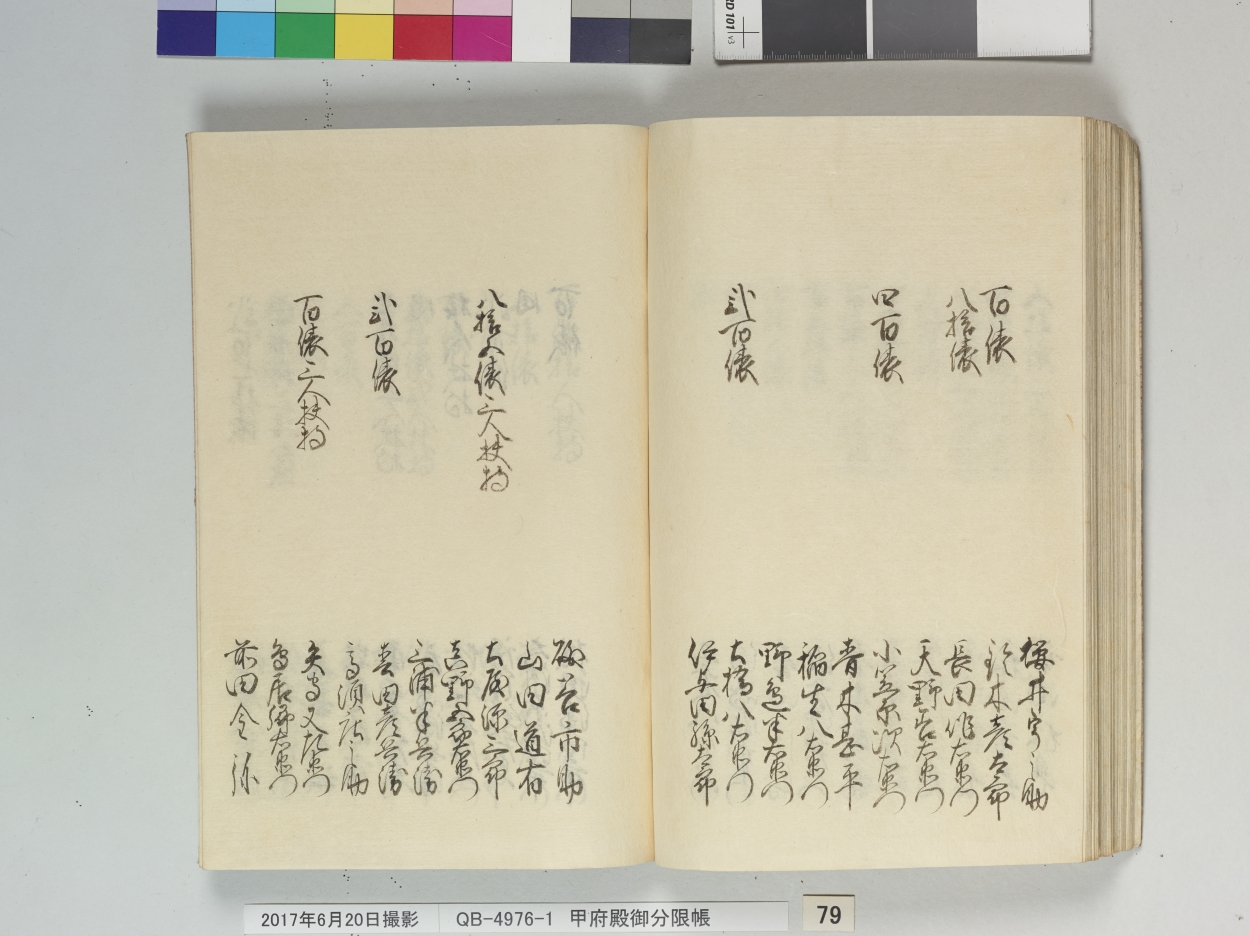 百俵
櫻井宇之助
八拾俵
鈴木彦太郎
長田作右衛門
天野岩右衛門
四百俵
小笠原次右衛門
青木甚平
稲生八右衛門
野邊半右衛門
弐百俵
大橋八右衛門
伊与田孫太郎
市助
山田道有
八拾五俵三人扶持
大原源三郎
真野五郎右衛門
三浦半兵衛
弐百俵
吉田彦兵衛
高須庄之助
百俵三人扶持
矢嶋又左衛門
鳥居源右衛門
前田金弥
2017年6月20日撮影
QB-4976-1 甲府殿御分限帳
79